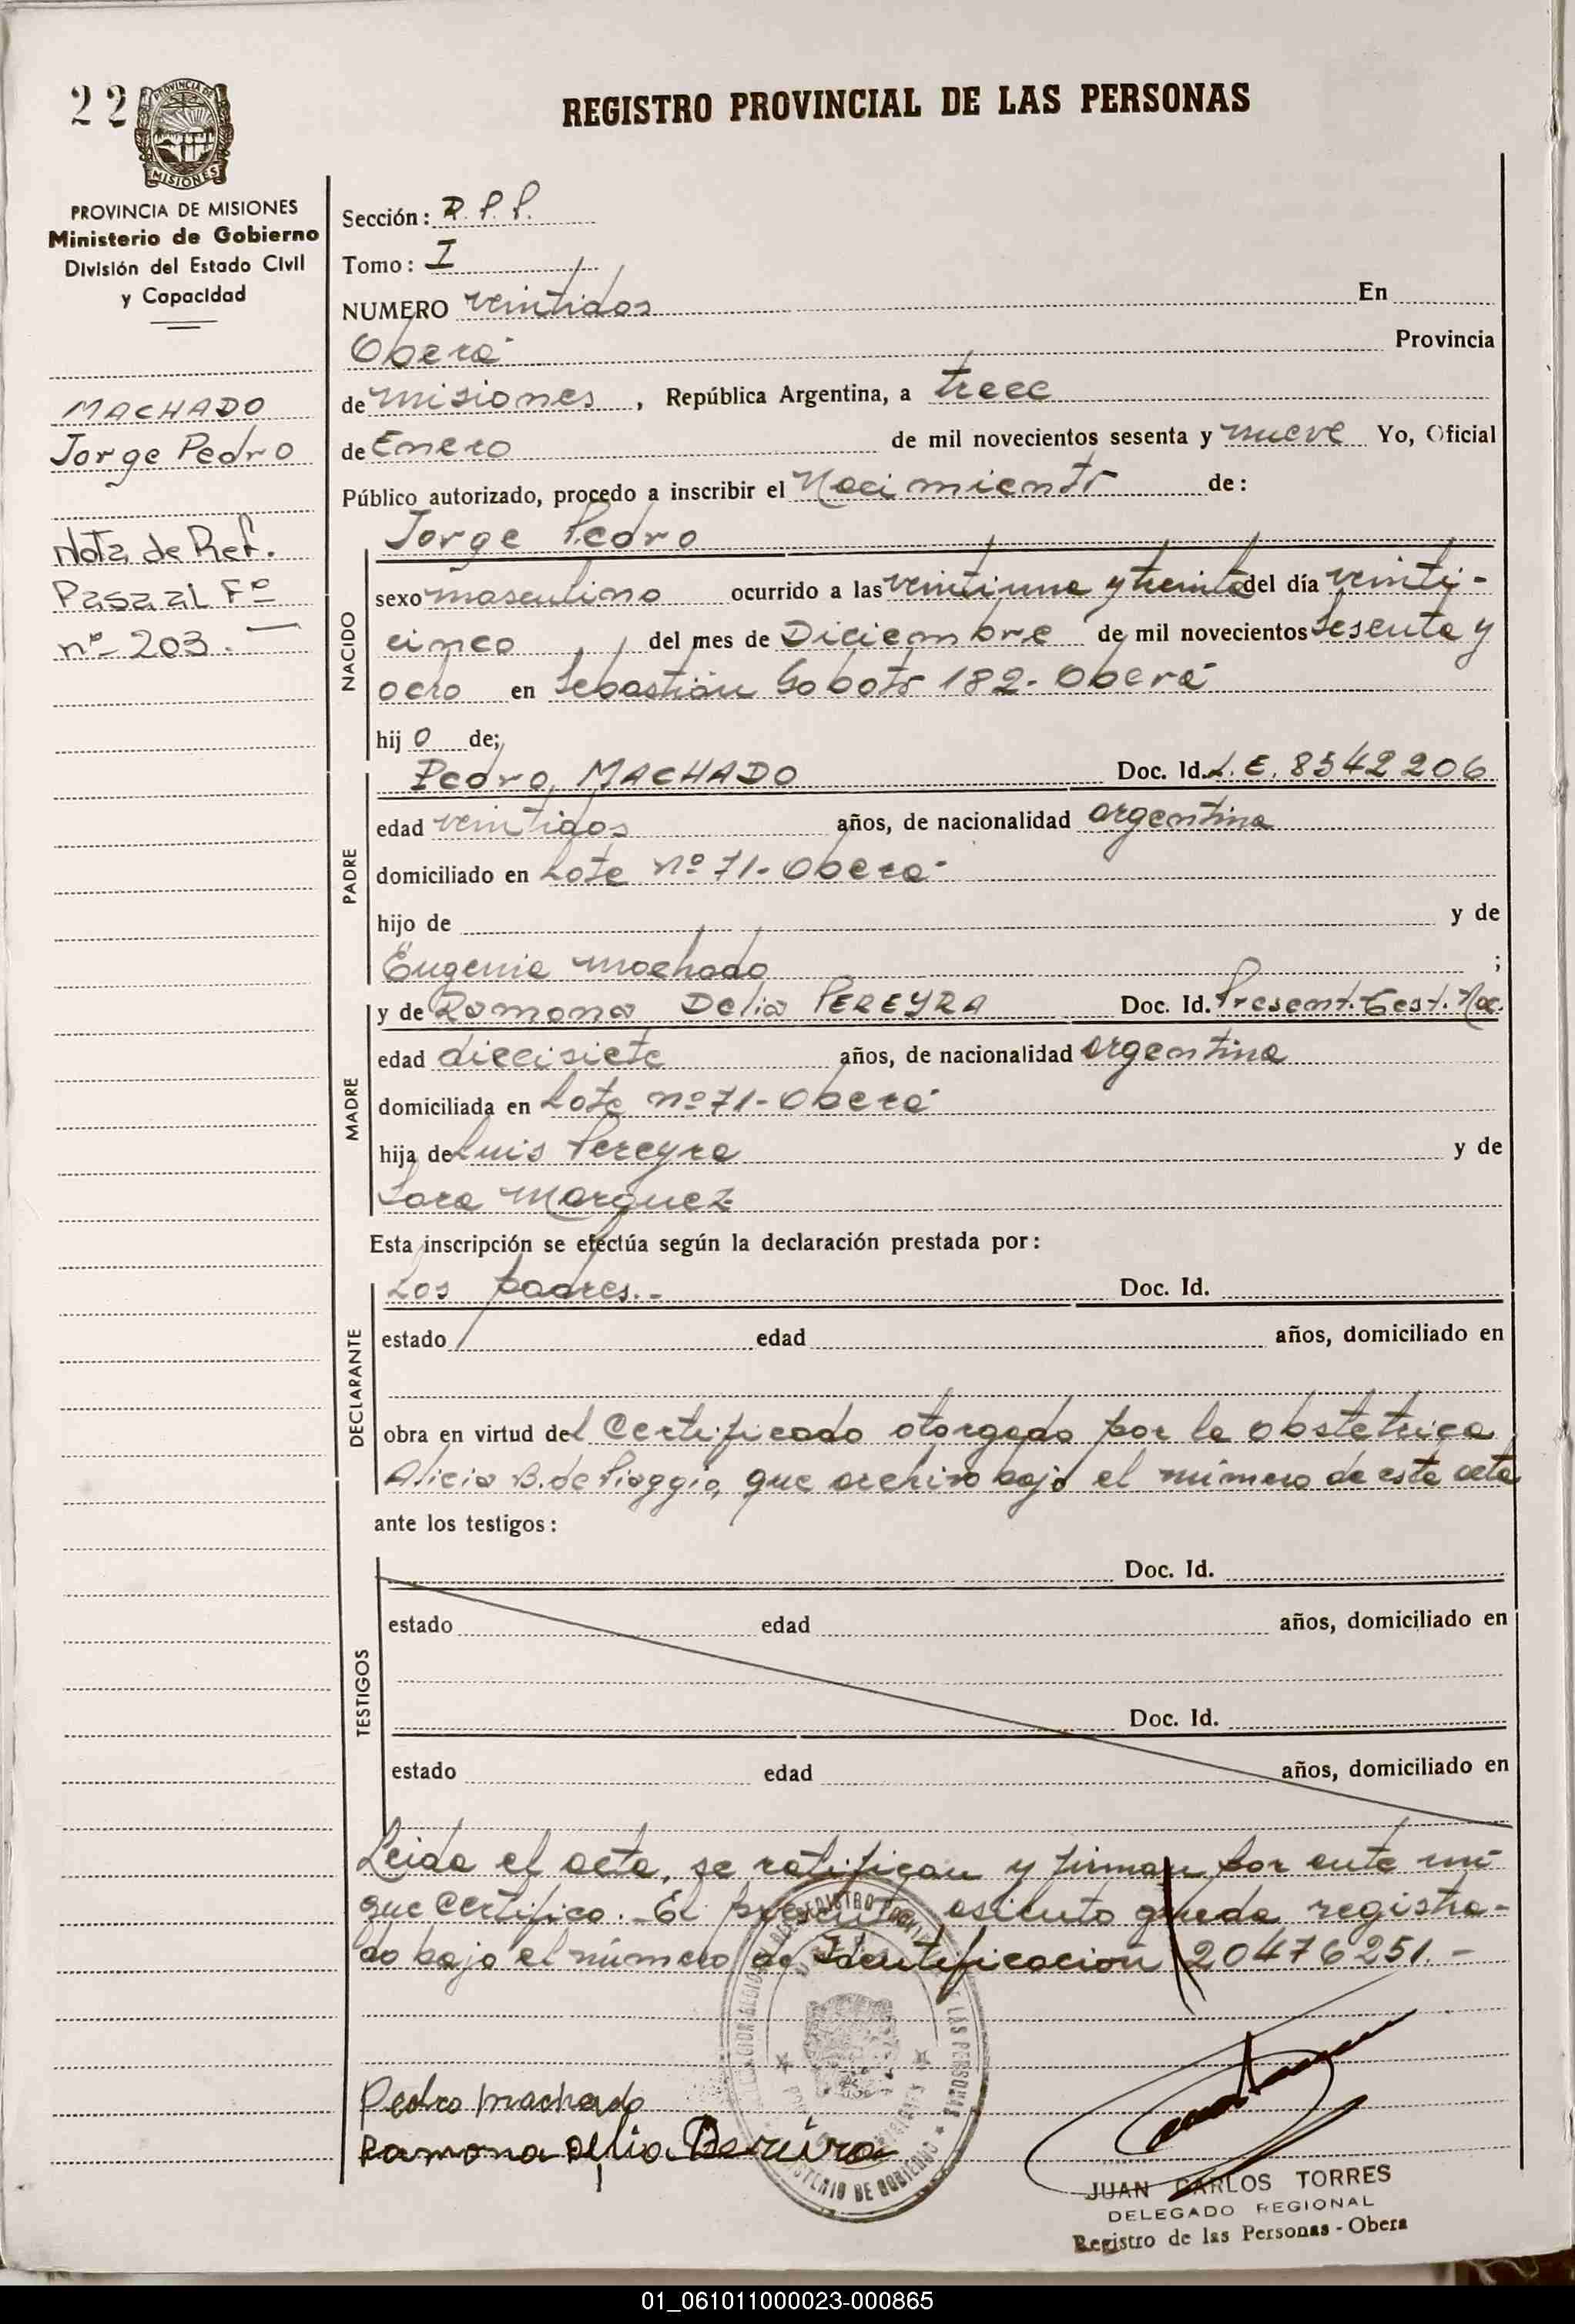 22
REGISTRO PROVINCIAL DE LAS PERSONAS
PROVINCIA DE MISIONES
Ministerio de Gobierno
División del Estado Civil
y Capacidad
MACHADO
Jorge Pedro
Nota de Ref.
Pasa al Fº
nº 203.
Sección: R. P. P.
Tomo: I
NUMERO veintidos En
Oberá Provincia
de Misiones, República Argentina, a trece
de Enero de mil novecientos sesenta y nueve Yo, Oficial
Público autorizado, procedo a inscribir el Nacimiento de:
Jorge Pedro
NACIDO
sexo masculino ocurrido a las veintiuna y treinta del día veinti-
cinco del mes de Diciembre de mil novecientos sesenta y
ocho en Sebastián Gaboto 182-Oberá
hijo de;
PADRE
Pedro MACHADO Doc. Id. L.E. 8542206
edad veintidos años, de nacionalidad argentina
domiciliado en Lote nº 71-Oberá
hijo de y de
Eugenia Machado ;
MADRE
y de Ramona Delia PEREYRA Doc. Id. Present. Cest. Nac.
edad diecisiete años, de nacionalidad argentina
domiciliada en Lote nº 71-Oberá
hija de Luis Pereyra y de
Sara Marquez
Esta inscripción se efectúa según la declaración prestada por:
DECLARANTE
Los padres.- Doc. Id.
estado edad años, domiciliado en
obra en virtud del Certificado otorgado por la obstetrica
Alicia B. de Piaggio, que archivo bajo el número de esta acta
ante los testigos:
TESTIGOS
Doc. Id.
estado edad años, domiciliado en
Doc. Id.
estado edad años, domiciliado en
Leida el acta, se ratifican y firman por ante mi
que Certifico.- El presente asiento queda registra-
do bajo el número de Identificación 20476251.-
Pedro Machado
Ramona Delia Pereira
MINISTERIO DE GOBIERNO
JUAN CARLOS TORRES
DELEGADO REGIONAL
Registro de las Personas - Obera
01_061011000023-000865